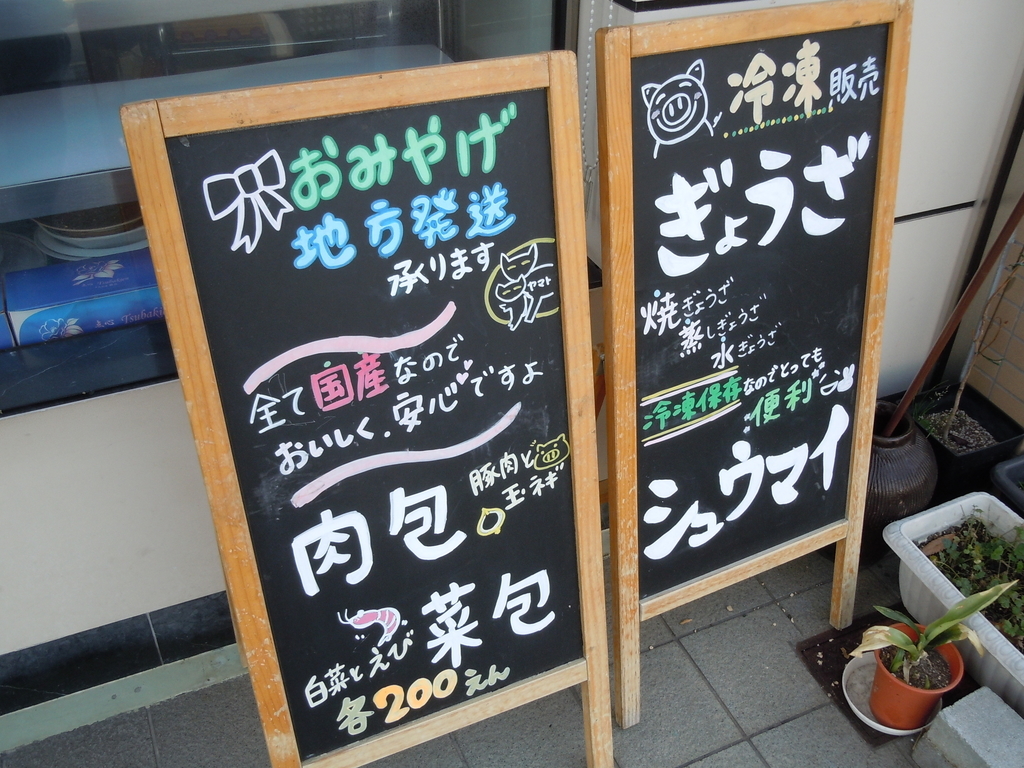 おみやげ
地方発送
承ります
ヤマト
全て国産なので
おいしく、安心ですよ
豚肉と
玉ネギ
肉包
菜包
白菜とえび
各200えん
冷凍販売
ぎょうざ
焼きぎょうざ
蒸しぎょうざ
水ぎょうざ
冷凍保存なのでとっても
便利
シュウマイ
Tsubaki